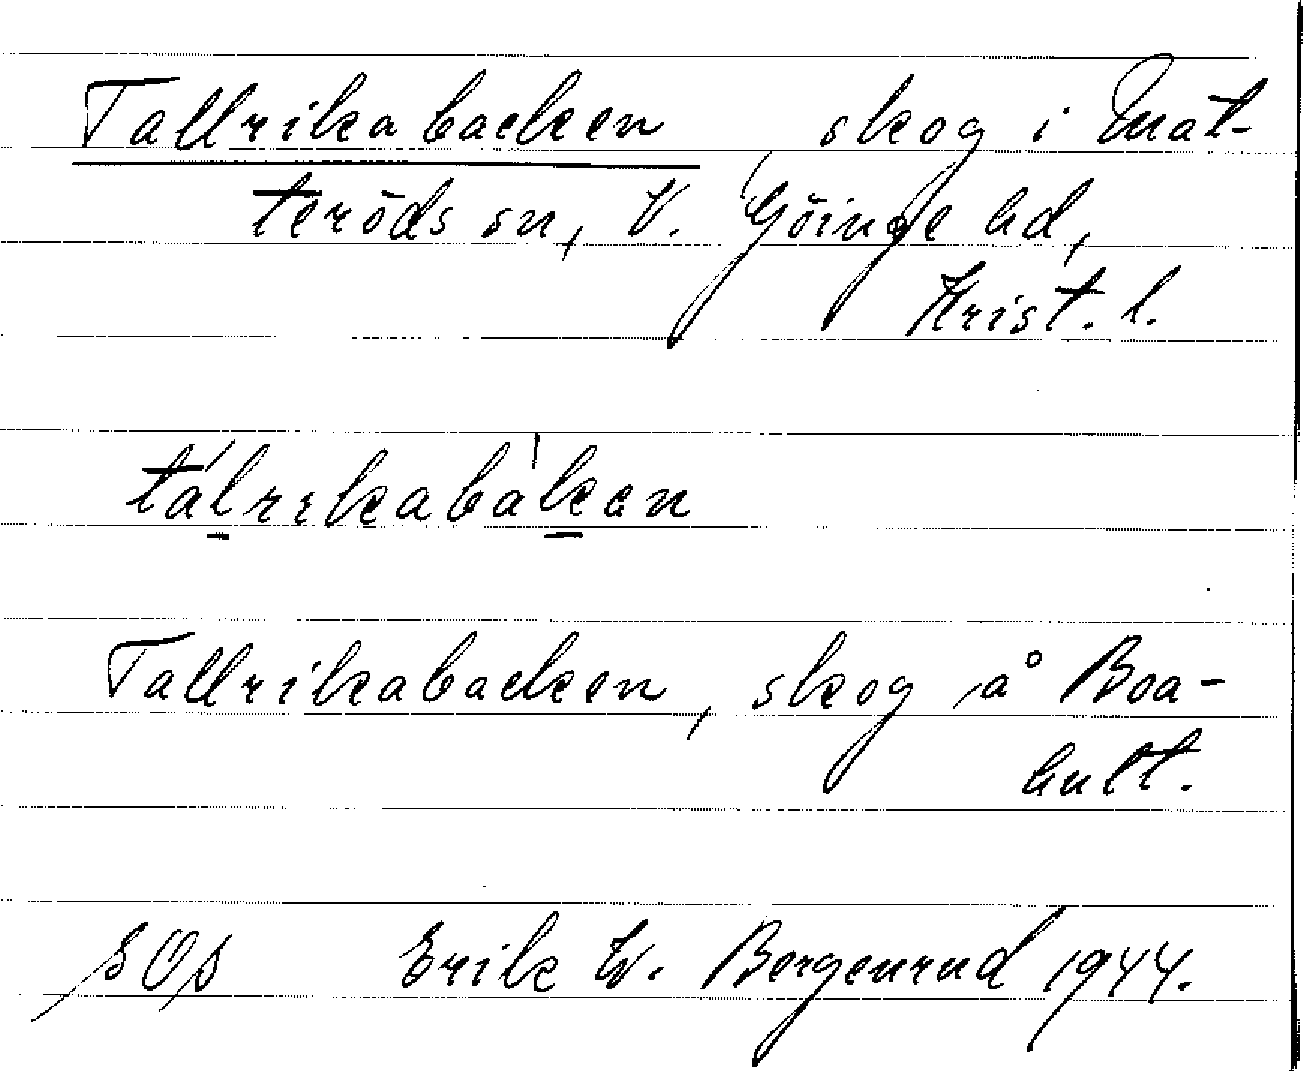 Tallrikabacken skog i Mat-
teröds sn, V. Göinge hd,
Krist. l.
tálrikabàkan
Tallrikabacken, skog å Boa-
hult.
SOS Erik W. Bergenrud 1944.